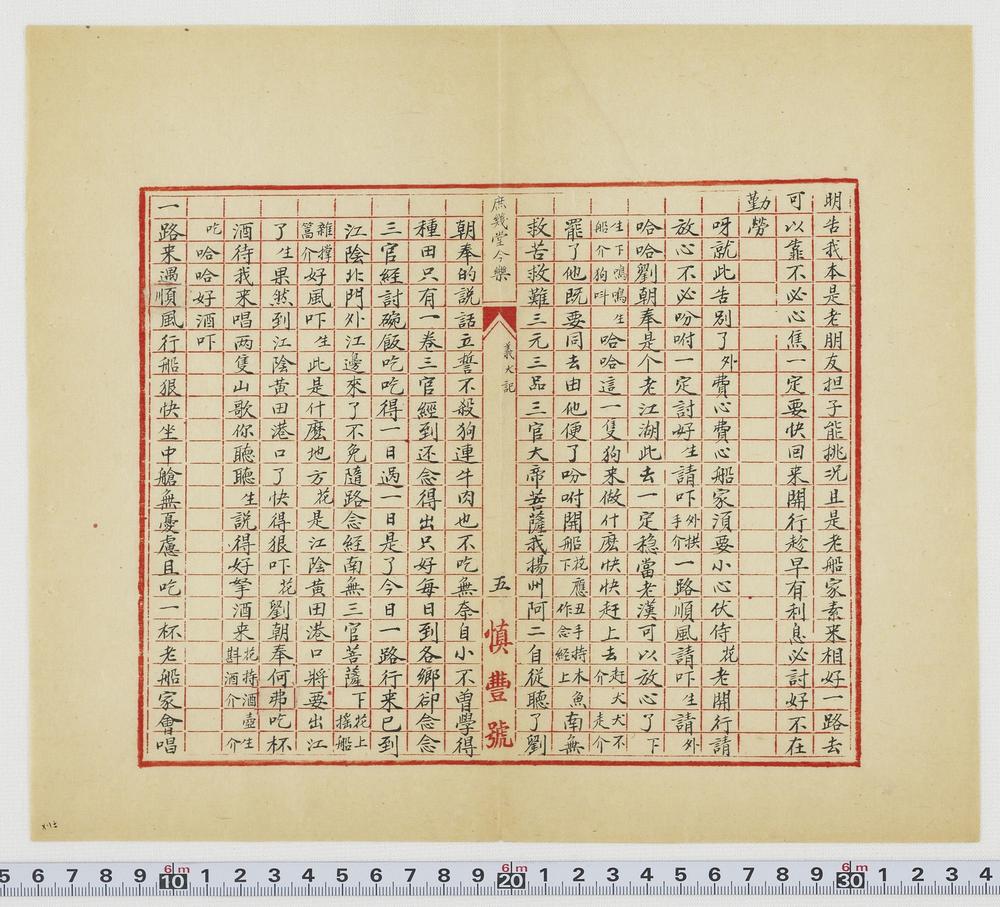 明告我本是老朋友担子能挑况且是老船家素来相好一路去
可以靠不必心焦一定要快回来開行趁早有利息必討好不在
勤勞
呀就此告別了外費心費心船家須要小心伏侍花老開行請
放心不必吩咐一定討好生請吓外拱手介一路順風請吓生請外
哈哈劉朝奉是个老江湖此去一定稳當老漢可以放心了下
生下鳴鳴船介狗呌生哈哈這一隻狗来做什麽快快赶上去赶犬犬不介走介
罷了他既要同去由他便了吩咐開船花應下丑手持木魚作念經上南無
救苦救難三元三品三官大帝菩薩我揚州阿二自從聽了劉
庶幾堂今樂
義犬記
五
慎豐號
朝奉的說話立誓不殺狗連牛肉也不吃無奈自小不曽學得
種田只有一卷三官經到还念得出只好每日到各鄉卻念念
三官經討碗飯吃吃得一日過一日是了今日一路行来已到
江陰北門外江邊來了不免隨路念經南無三官菩薩下花上摇船
雜撑篙介好風吓生此是什麽地方花是江陰黄田港口將要出江
了生果然到江陰黄田港口了快得狠吓花劉朝奉何弗吃杯
酒待我来唱两隻山歌你聽聽生説得好拏酒来花持酒壺生斟酒介介
吃哈哈好酒吓
一路来遇順風行船狠快坐中艙無憂慮且吃一杯老船家會唱
5 6 7 8 9 10 1 2 3 4 5 6 7 8 9 20 1 2 3 4 5 6 7 8 9 30 1 2 3 4
6 m
6 m